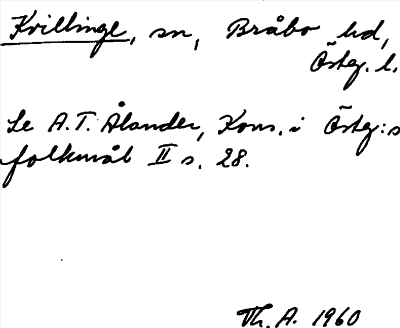 Kvillinge, sn, Bråbo hd,
Österg. l.
Se A.T. Ålander, Kons. i Österg:s
folkmål II s. 28.
Th. A. 1960